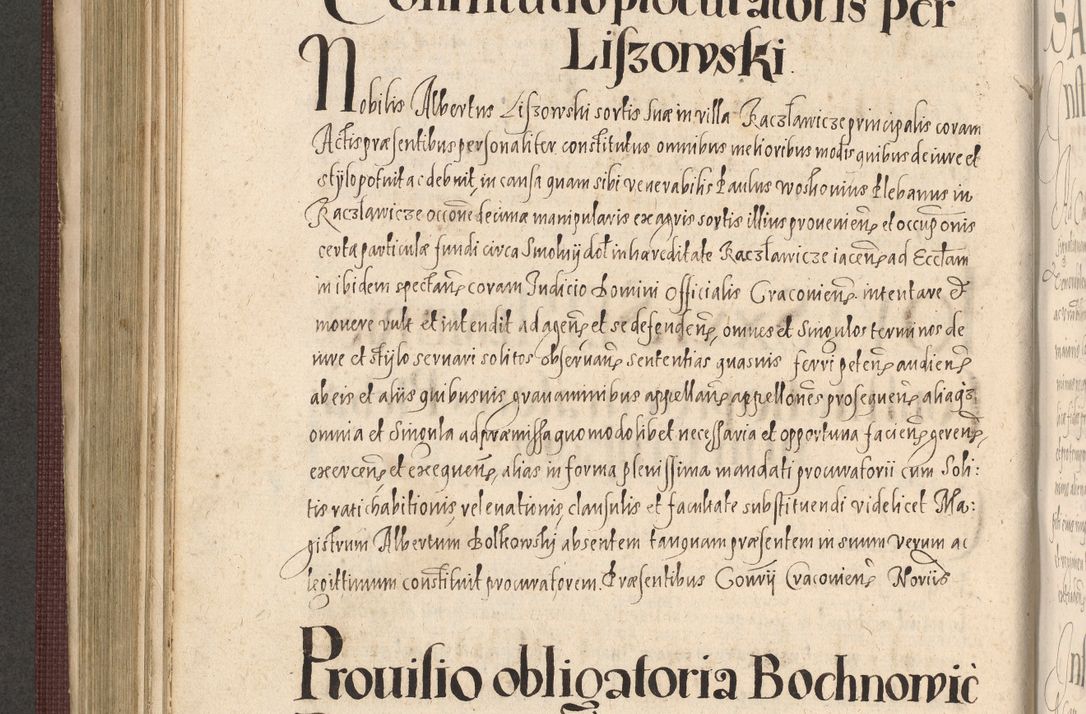 Constitutio procuratoris per
Liſzowski.
Nobilis Albertus Liſzowski sortis suæ in villa Raczławicze principalis coram
Actis præsentibus personaliter constitutus omnibus melioribus modis quibus de iure et
stylo potuit ac debuit, in causa quam sibi venerabilis Paulus woskonius Plebanus in
Raczlawicze occōne decimæ manipularis ex agris sortis illius provenien̄ et occup̄onis
certæ particulæ fundi circa dot̄ in hæreditate Raczlawicze iacen̄ ad Eccl̄am
in ibidem spectan̄ coram Iudicio Domini Officialis Cracovien̄ intentare et
movere vult et intendit ad agen̄ et se defenden̄, omnes et singulos terminos de
iure et stylo servari solitos observan̄ sententias quasvis ferri peten̄ audien̄
ab eis et aliis quibusvis gravaminibus appellan̄ appellōnes prosequen̄ aliaq̄
omnia et singula ad præmissa quomodolibet necessaria et opportuna facien̄ geren̄,
exercen̄ et exequen̄, alias in forma plenissima mandati procuratorii cum Soli:
tis ratihabitionis relevationis, clausulis et facultate substituendi videlicet Ma:
gistrum Albertum Bolkowski absentem tanquam præsentem in suum verum ac
legittimum constituit procuratorem. Præsentibus Cracovien̄ Noriis
Prouisio obligatoria Bochnowic̄